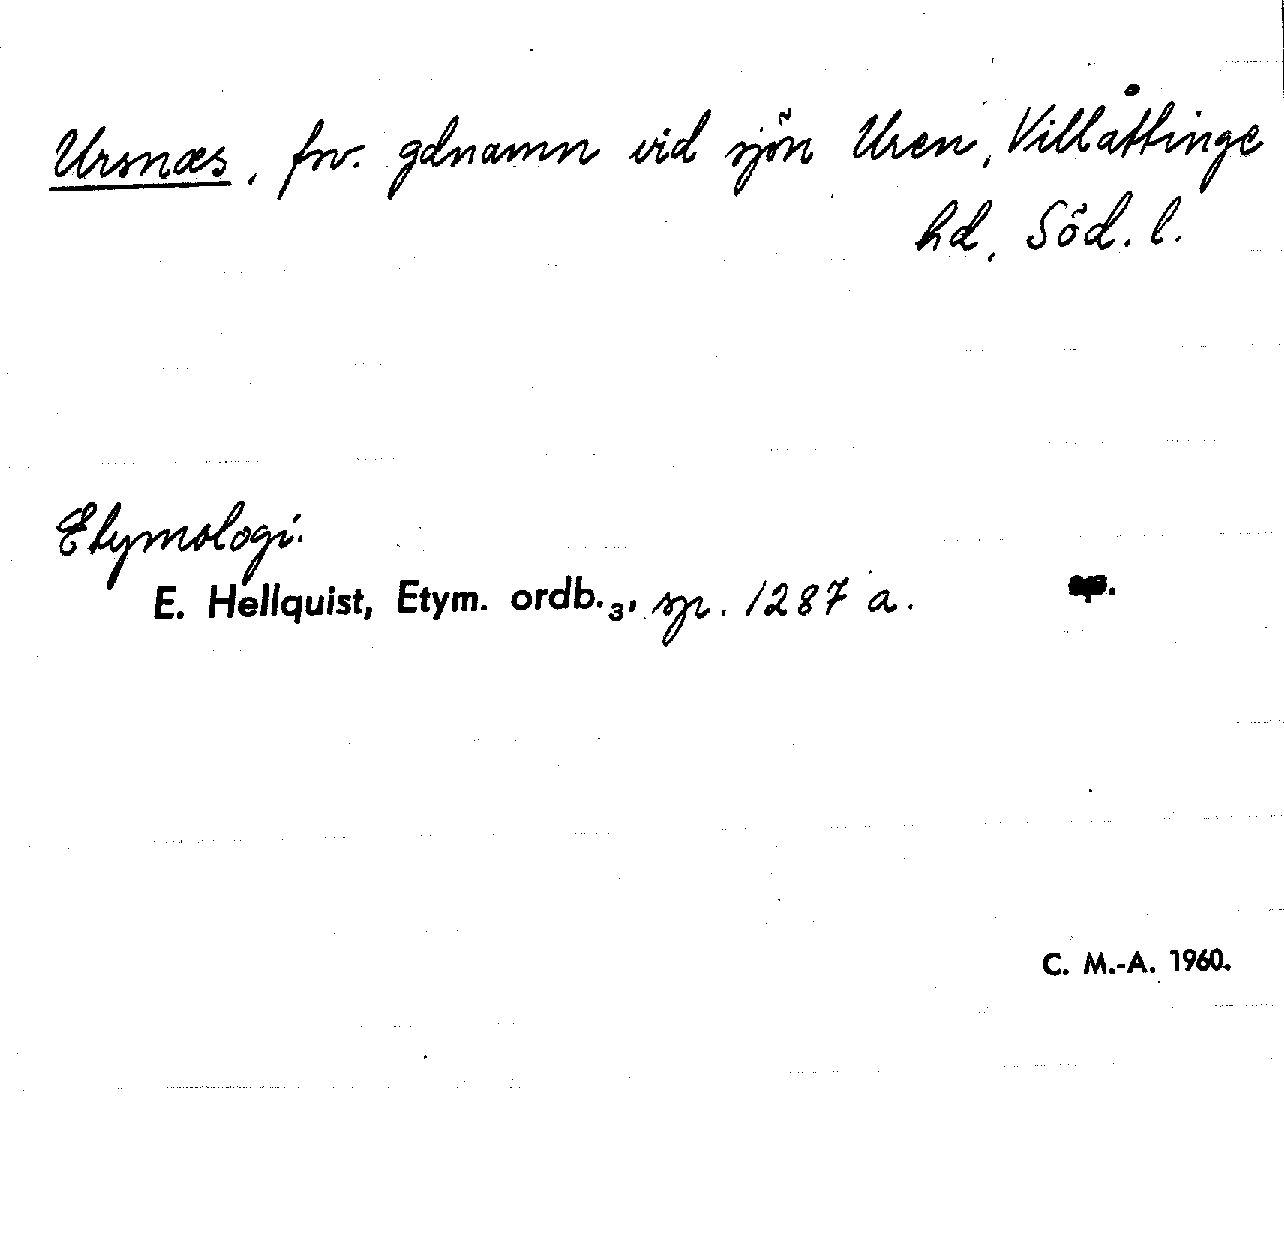 Ursnæs, fnv. gdnamn vid sjön Uren, Villåttinge
hd, Söd. l.
Etymologi.
E. Hellquist, Etym. ordb.₃, sp. 1287 a.
C. M.-A. 1960.